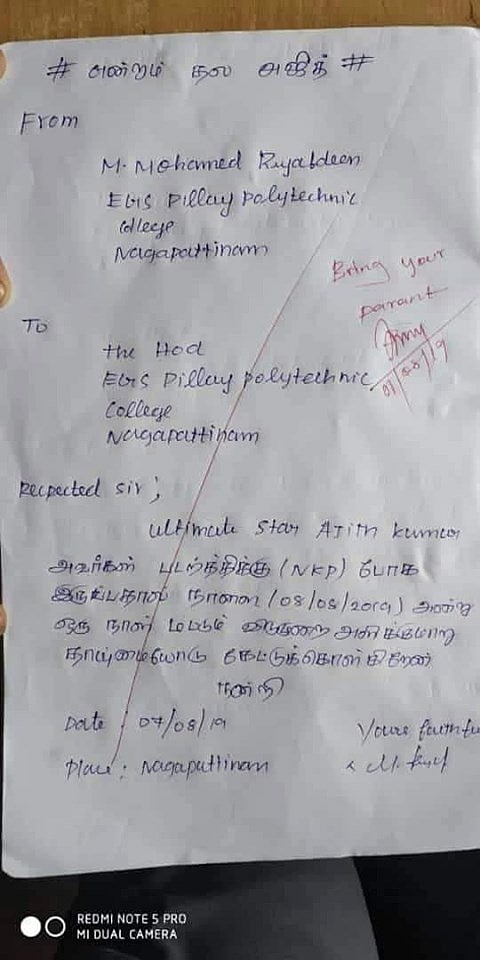 # என்றும் தல அஜித் #
From
M. Mohamed Riyabdeen
EGS Pillay polytechnic
college
Nagapattinam
Bring your
parant
07/08/19
To
the Hod
EGS Pillay polytechnic
College
Nagapattinam
Recpected sir ;
ultimate star Ajith kumar
அவர்கள் படத்திற்க்கு (NKP) போக
இருப்பதால் நாளை (08/08/2019) அன்று
ஒரு நாள் மட்டும் விடுமுறை அளிக்குமாறு
தாய்மையோடு கேட்டுக்கொள்கிறேன்
நன்றி
Date : 07/08/19
Yours faithfu
Place : Nagapattinam
x M.
REDMI NOTE 5 PRO
MI DUAL CAMERA